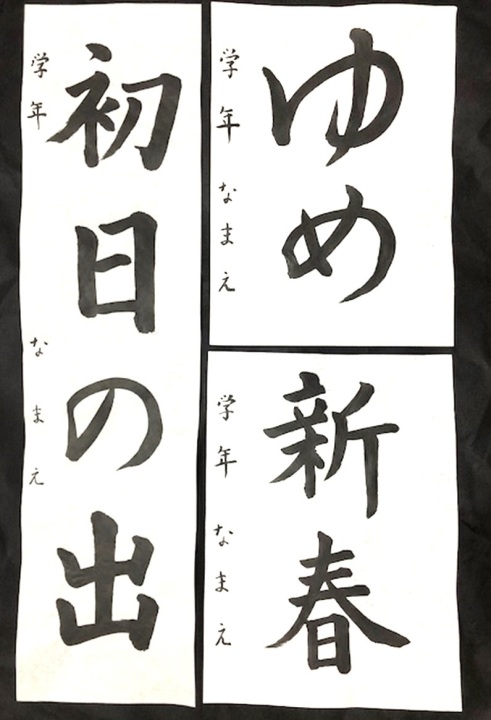 ゆめ
学年 なまえ
新春
学年 なまえ
初日の出
学年 なまえ